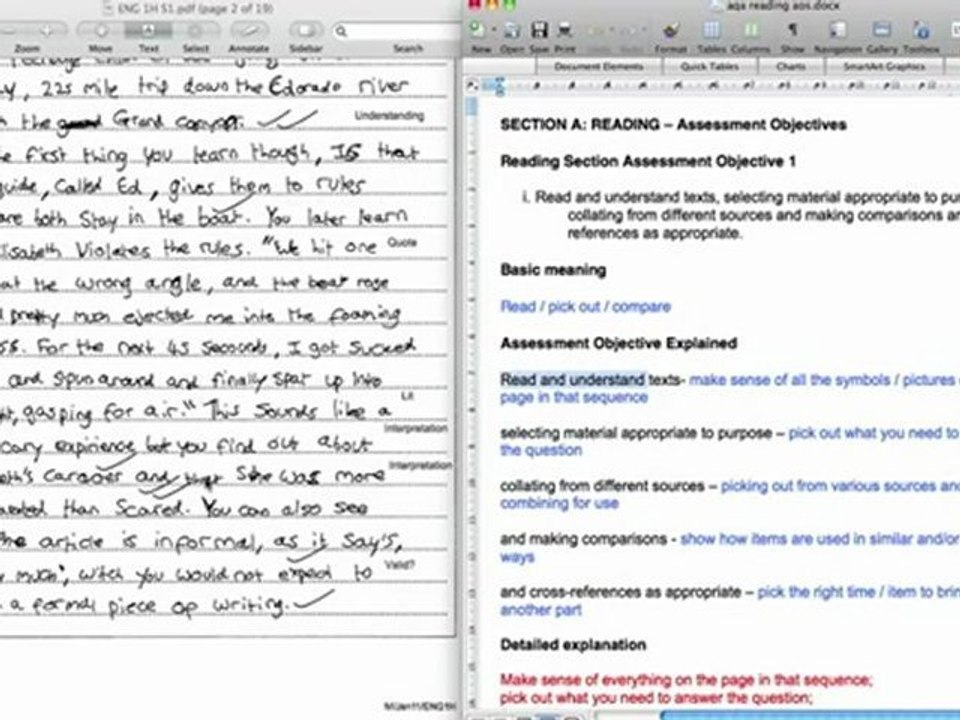 ENG 1H S1.pdf (page 2 of 19)
Zoom Move Text Select Annotate Sidebar Search
y, 225 mile trip down the Colorado river
the Grand canyon.
Understanding
e first thing you learn though, IS that
guide, Called Ed, gives them to rules
are both Stay in the boat. You later learn
lisabeth Violates the rules. "We hit one
Quote
at the wrong angle, and the boat rose
pretty much ejected me into the foaming
ss. For the next 45 seconds, I got Sucked
and Spun around and finally spat up into
Lit
ht, gasping for air." This Sounds like a
Interpretation
cary expirience but you find out about
Interpretation
eth's Caracter and that She was more
than Scared. You can also see
the article is informal, as it Say's,
much", witch you would not expect to
Valid?
a formal piece op writing.
aqa reading aos.docx
New Open Save Print Format Tables Columns Show Navigation Gallery Toolbox
Document Elements Quick Tables Charts SmartArt Graphics
SECTION A: READING – Assessment Objectives
Reading Section Assessment Objective 1
i. Read and understand texts, selecting material appropriate to pur
collating from different sources and making comparisons an
references as appropriate.
Basic meaning
Read / pick out / compare
Assessment Objective Explained
Read and understand texts- make sense of all the symbols / pictures
page in that sequence
selecting material appropriate to purpose – pick out what you need to
the question
collating from different sources – picking out from various sources and
combining for use
and making comparisons - show how items are used in similar and/or
ways
and cross-references as appropriate – pick the right time / item to brin
another part
Detailed explanation
Make sense of everything on the page in that sequence;
pick out what you need to answer the question;